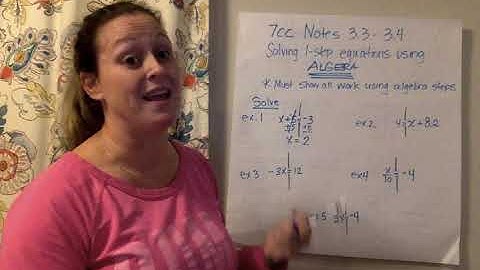 7cc Notes 3.3 - 3.4
Solving 1-step equations using
ALGEBRA
* Must show all work using algebra steps
Solve
ex. 1
x + 5 = -3
x = 2
ex 2.
= x + 8.2
ex 3
-3x = 12
ex 4
x/10 = -4
-4